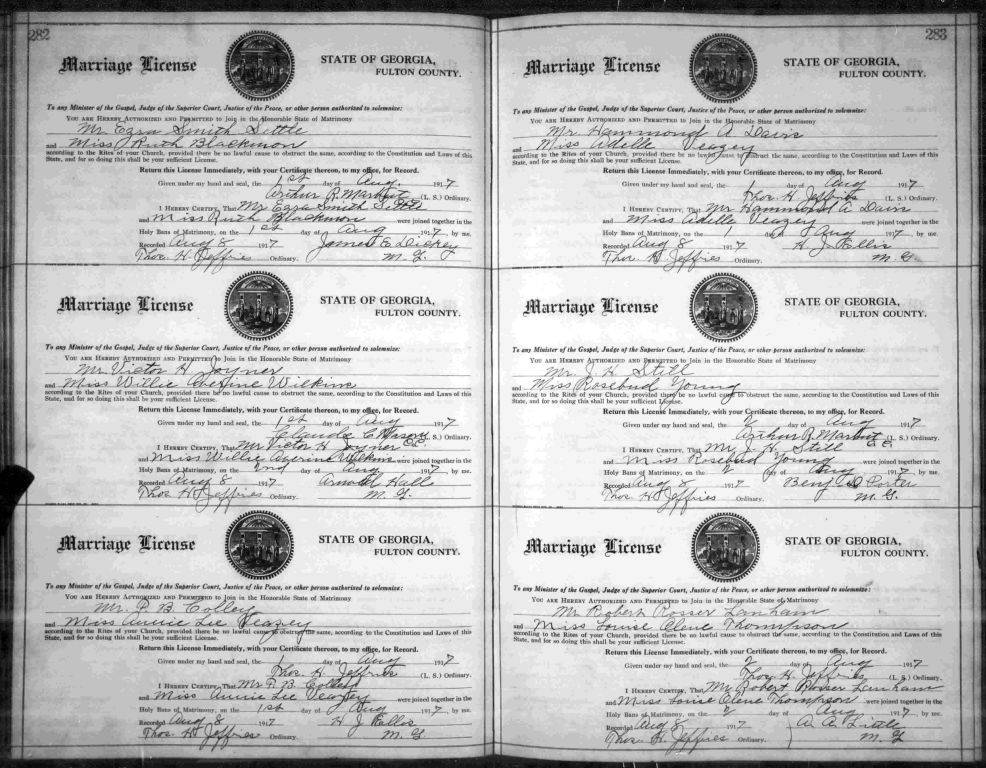 282
Marriage License
STATE OF GEORGIA,
FULTON COUNTY.
To any Minister of the Gospel, Judge of the Superior Court, Justice of the Peace, or other person authorized to solemnize:
YOU ARE HEREBY AUTHORIZED AND PERMITTED to Join in the Honorable State of Matrimony
Mr. Ezra Smith Settle
and Miss Ruth Blackmon
according to the Rites of your Church, provided there be no lawful cause to obstruct the same, according to the Constitution and Laws of this
State, and for so doing this shall be your sufficient License.
Return this License Immediately, with your Certificate thereon, to my office, for Record.
Given under my hand and seal, the 1st day of Aug. 1917
Arthur R. Marbut (L. S.) Ordinary.
I HEREBY CERTIFY, That Mr Ezra Smith Settle
and Miss Ruth Blackmon were joined together in the
Holy Bans of Matrimony, on the 1st day of Aug 1917, by me.
Recorded Aug 8 1917 James E Dickey
Thos. H Jeffries Ordinary. M. G.
Marriage License
STATE OF GEORGIA,
FULTON COUNTY.
To any Minister of the Gospel, Judge of the Superior Court, Justice of the Peace, or other person authorized to solemnize:
YOU ARE HEREBY AUTHORIZED AND PERMITTED to Join in the Honorable State of Matrimony
Mr. Victor H Joyner
and Miss Willie Wilkins
according to the Rites of your Church, provided there be no lawful cause to obstruct the same, according to the Constitution and Laws of this
State, and for so doing this shall be your sufficient License.
Return this License Immediately, with your Certificate thereon, to my office, for Record.
Given under my hand and seal, the 1st day of Aug 1917
Claude C Mason C.C. (L. S.) Ordinary.
I HEREBY CERTIFY, That Mr Victor H Joyner
and Miss Willie Wilkins were joined together in the
Holy Bans of Matrimony, on the 2nd day of Aug 1917, by me.
Recorded Aug 8 1917 Arnold Hall
Thos. H. Jeffries Ordinary. M. G.
Marriage License
STATE OF GEORGIA,
FULTON COUNTY.
To any Minister of the Gospel, Judge of the Superior Court, Justice of the Peace, or other person authorized to solemnize:
YOU ARE HEREBY AUTHORIZED AND PERMITTED to Join in the Honorable State of Matrimony
Mr. P. B Colley
and Miss Annie Lee Veazey
according to the Rites of your Church, provided there be no lawful cause to obstruct the same, according to the Constitution and Laws of this
State, and for so doing this shall be your sufficient License.
Return this License Immediately, with your Certificate thereon, to my office, for Record.
Given under my hand and seal, the 1 day of Aug 1917
Thos. H. Jeffries (L. S.) Ordinary.
I HEREBY CERTIFY, That Mr P. B. Colley
and Miss Annie Lee Veazey were joined together in the
Holy Bans of Matrimony, on the 1st day of Aug 1917, by me.
Recorded Aug 8 1917 H J
Thos. H. Jeffries Ordinary. M. G.
283
Marriage License
STATE OF GEORGIA,
FULTON COUNTY.
To any Minister of the Gospel, Judge of the Superior Court, Justice of the Peace, or other person authorized to solemnize:
YOU ARE HEREBY AUTHORIZED AND PERMITTED to Join in the Honorable State of Matrimony
Mr. Hammond A Davis
and Miss Adelle Veazey
according to the Rites of your Church, provided there be no lawful cause to obstruct the same, according to the Constitution and Laws of this
State, and for so doing this shall be your sufficient License.
Return this License Immediately, with your Certificate thereon, to my office, for Record.
Given under my hand and seal, the 1 day of Aug 1917
Thos. H Jeffries (L. S.) Ordinary.
I HEREBY CERTIFY, That Mr Hammond A Davis
and Miss Adelle Veazey were joined together in the
Holy Bans of Matrimony, on the 1 day of Aug 1917, by me.
Recorded Aug 8 1917 H J
Thos. H Jeffries Ordinary. M. G.
Marriage License
STATE OF GEORGIA,
FULTON COUNTY.
To any Minister of the Gospel, Judge of the Superior Court, Justice of the Peace, or other person authorized to solemnize:
YOU ARE HEREBY AUTHORIZED AND PERMITTED to Join in the Honorable State of Matrimony
Mr. J. H. Still
and Miss Rosebud Young
according to the Rites of your Church, provided there be no lawful cause to obstruct the same, according to the Constitution and Laws of this
State, and for so doing this shall be your sufficient License.
Return this License Immediately, with your Certificate thereon, to my office, for Record.
Given under my hand and seal, the 2 day of Aug 1917
Arthur R. Marbut C.C. (L. S.) Ordinary.
I HEREBY CERTIFY, That Mr. J. H. Still
and Miss Rosebud Young were joined together in the
Holy Bans of Matrimony, on the 2 day of Aug 1917, by me.
Recorded Aug 8 1917 Benj D Porter
Thos. H. Jeffries Ordinary. M. G.
Marriage License
STATE OF GEORGIA,
FULTON COUNTY.
To any Minister of the Gospel, Judge of the Superior Court, Justice of the Peace, or other person authorized to solemnize:
YOU ARE HEREBY AUTHORIZED AND PERMITTED to Join in the Honorable State of Matrimony
Mr Robert Rosser Lanham
and Miss Louise Clene Thompson
according to the Rites of your Church, provided there be no lawful cause to obstruct the same, according to the Constitution and Laws of this
State, and for so doing this shall be your sufficient License.
Return this License Immediately, with your Certificate thereon, to my office, for Record.
Given under my hand and seal, the 2 day of Aug 1917
Thos. H. Jeffries (L. S.) Ordinary.
I HEREBY CERTIFY, That Mr Robert Rosser Lanham
and Miss Louise Clene Thompson were joined together in the
Holy Bans of Matrimony, on the 2 day of Aug 1917, by me.
Recorded Aug 8 1917 A. A. Little
Thos. H. Jeffries Ordinary. M. G.